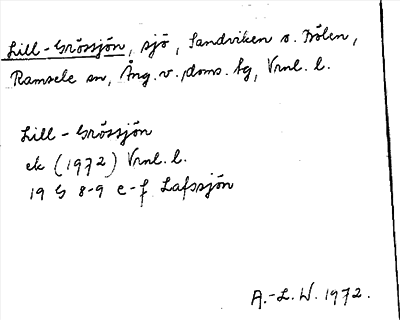 Lill-Grössjön, sjö, Sandviken o. Bölen,
Ramsele sn, Ång. v. doms. tg, Vrnl. l.
Lill-Grössjön
ek (1972) Vrnl. l.
19 G 8-9 e-f Lafssjön
A.-L. W. 1972.